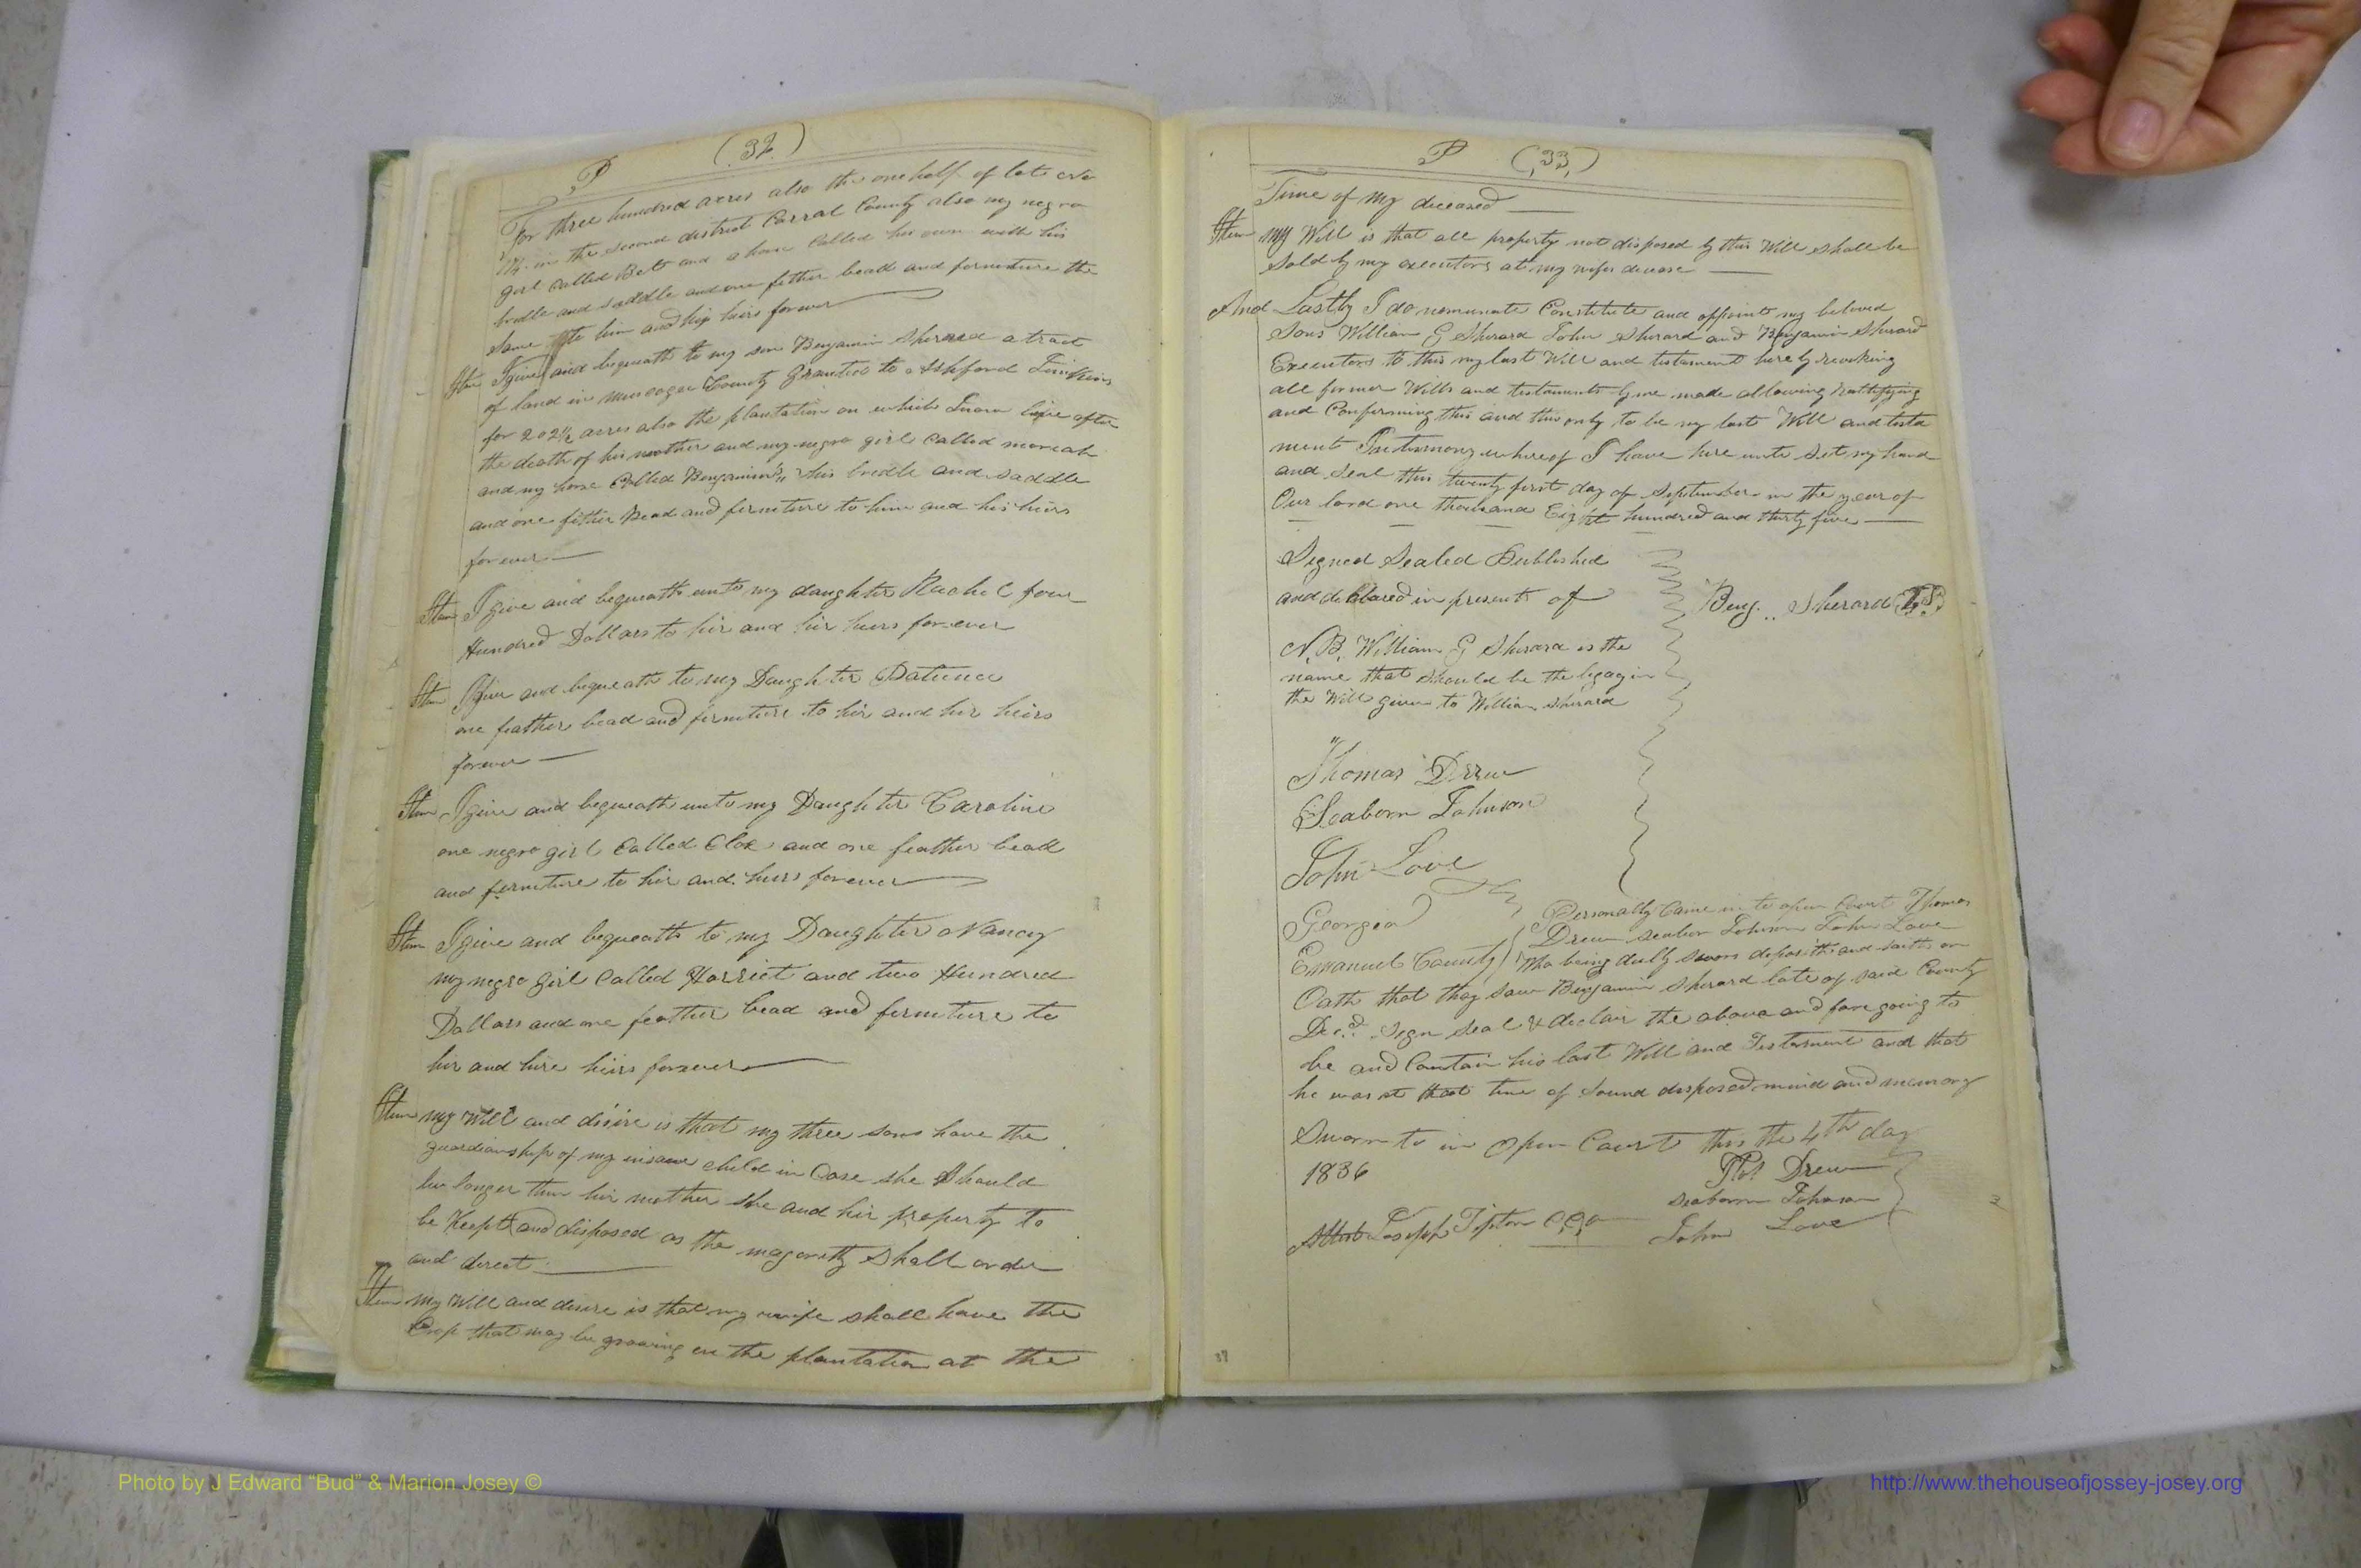 P (32)
For three hundred acres also the one half of lot No
in the second district Carral County also my negro
girl called Bet and a horse Called his own with his
bridle and saddle and one fether bead and furneture the
same to him and his heirs forever
Item I give and bequeath to my son Benjamin Sherard a tract
of land in Muscogee County granted to Ashford
for 202½ acres also the plantation on which I now live after
the death of his mother and my negro girl called moriah
and my horse Called Benjamin's, his bridle and saddle
and one fether Bead and ferneture to him and his heirs
forever
Item I give and bequeath unto my daughter Rachel four
Hundred Dollars to hir and hir heirs forever
Item I give and bequeath to my Daughter Patience
one feather bead and ferneture to hir and hir heirs
forever
Item I give and bequeath unto my Daughter Caroline
one negro girl Called Cloe and one feather bead
and ferneture to hir and heirs forever
Item I give and bequeath to my Daughter Nancy
my negro girl Called Harriet and two Hundred
Dollars and one feather bead and ferneture to
hir and hire heirs forever
Item my Will and desire is that my three sons have the
guardianship of my insane child in Case she should
live longer than hir mother she and hir property to
be Keept and disposed as the majority shall order
and direct
Item my Will and desire is that my wife shall have the
Crop that may be growing on the plantation at the
P (33)
Time of my deceased
Item my Will is that all property not disposed by this Will shall be
sold by my executors at my wifes decease
And Lastly I do nomenate Constitute and appoint my beloved
Sons William G Sherard John Sherard and Benjamin Sherard
Executors to this my last Will and testament hereby revoking
all former Wills and testaments by me made allowing rattifying
and Confirming this and this only to be my last Will and testa
ment In testimony whereof I have here unto set my hand
and seal this twenty first day of September in the year of
Our lord one thousand Eight hundred and thirty five
Signed Sealed Published
and declared in presents of
Benj. Sherard L.S.
N.B. William G Sherard is the
name that should be the legacy in
the Will given to William Sherard
Thomas Drew
Seaborn Johnson
John Love
Georgia
Emanuel County
Personally Came in to open Court Thomas
Drew seabor Johnson John Love
Who being dully sworn deposith and saith on
Oath that they saw Benjamin Sherard late of said County
Decd. sign seal & declair the above and fore going to
be and Contain his last Will and Testament and that
he was at that time of sound disposed mind and memory
Sworn to in Open Court this the 4th day
1836
Thos Drew
Seaborn Johnson
John Love
Attest Joseph Tipton CCO
Photo by J Edward “Bud” & Marion Josey ©
http://www.thehouseofjossey-josey.org